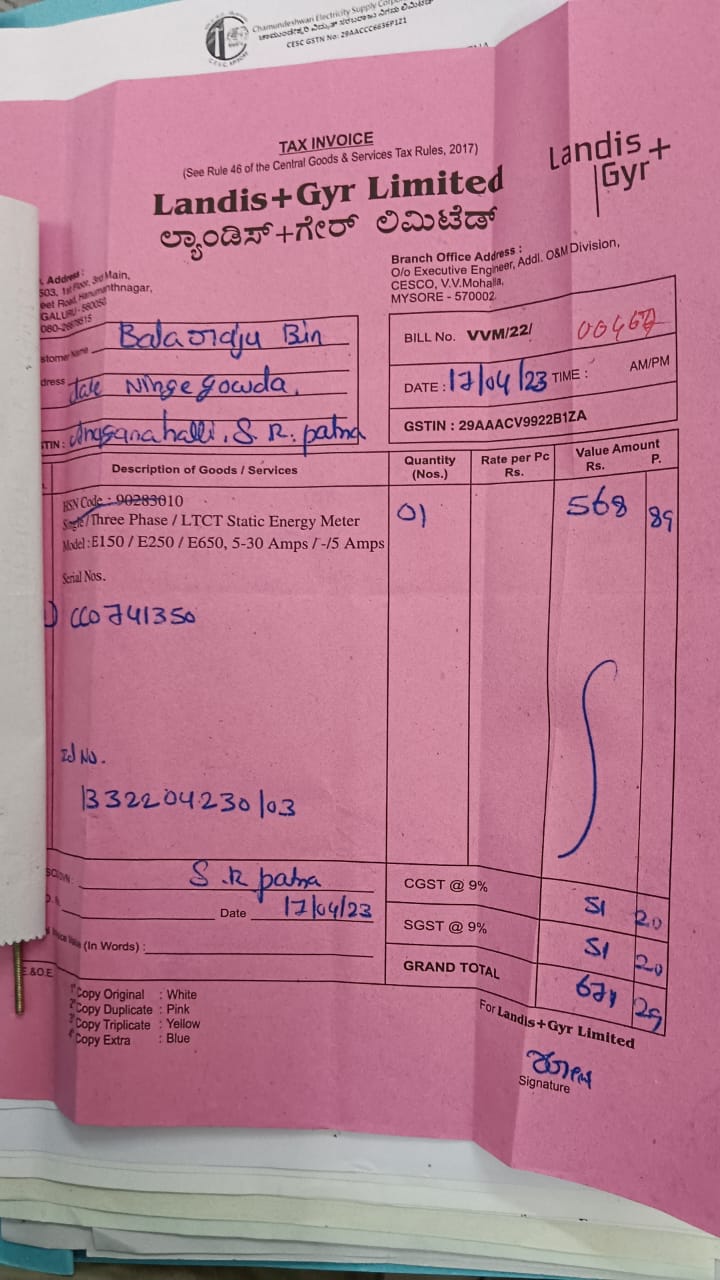 Chamundeshwari Electricity Supply Corpor
ಚಾಮುಂಡೇಶ್ವರಿ ವಿದ್ಯುತ್ ಸರಬರಾಜು ನಿಗಮ ಲಿಮಿಟೆಡ್
CESC GSTN No: 29AACCC6636P1Z1
TAX INVOICE
(See Rule 46 of the Central Goods & Services Tax Rules, 2017)
Landis+Gyr Limited
ಲ್ಯಾಂಡಿಸ್+ಗೇರ್ ಲಿಮಿಟೆಡ್
Landis+
Gyr
Address :
503, 1st Floor, 3rd Main,
eet Road, Hanumanthnagar,
GALURU - 560050
Branch Office Address :
O/o Executive Engineer, Addl. O&M Division,
CESCO, V.V.Mohalla,
MYSORE - 570002.
stomer Name Balaraju Bin
dress late Ningegowda.
TIN : S. R. patna
BILL No. VVM/22/
DATE : 17/04/23 TIME : AM/PM
GSTIN : 29AAACV9922B1ZA
Description of Goods / Services
Quantity (Nos.)
Rate per Pc Rs.
Value Amount Rs. P.
HSN Code : 90283010
Single/Three Phase / LTCT Static Energy Meter
Model : E150 / E250 / E650, 5-30 Amps / -/5 Amps
01
568 89
Serial Nos.
1) CC0741350
Id No.
1332204230103
S.R patna
Date 17/04/23
(In Words) :
E.&O.E.
CGST @ 9% 51 20
SGST @ 9% 51 20
GRAND TOTAL 671 29
1st Copy Original : White
2nd Copy Duplicate : Pink
3rd Copy Triplicate : Yellow
4th Copy Extra : Blue
For Landis+Gyr Limited
Signature